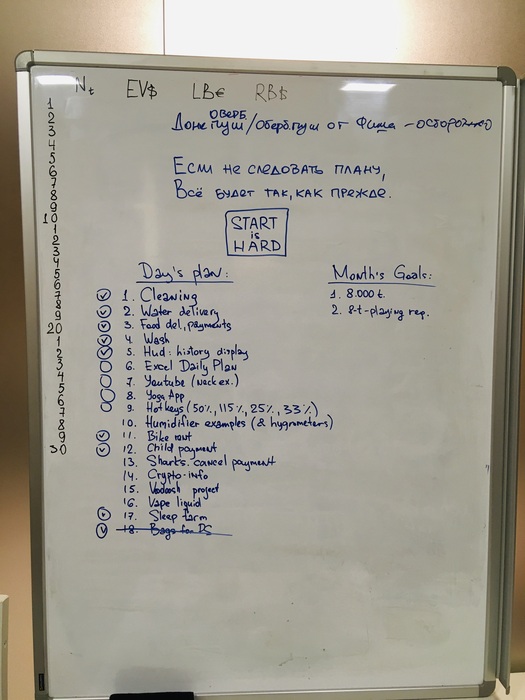 Nt EV$ LB€ RB$
1
2
3
4
5
6
7
8
9
10
1
2
3
4
5
6
7
8
9
20
1
2
3
4
5
6
7
8
9
30
ОВЕРБ
Донк пуш/Оберб.пуш от Фиша – осторожно
Если не следовать плану,
Всё будет так, как прежде.
START
is
HARD
Day's plan:
1. Cleaning
2. Water delivery
3. Food del., payments
4. Wash
5. Hud: history display
6. Excel Daily Plan
7. Youtube (neck ex.)
8. Yoga App
9. Hotkeys (50%, 115%, 25%, 33%)
10. Humidifier examples (& hygrometers)
11. Bike rent
12. Child payment
13. Sharks. cancel payment
14. Crypto-info
15. project
16. Vape liquid
17. Sleep farm
18. Bags for PS
Month's Goals:
1. 8.000 t.
2. 8-t-playing reg.